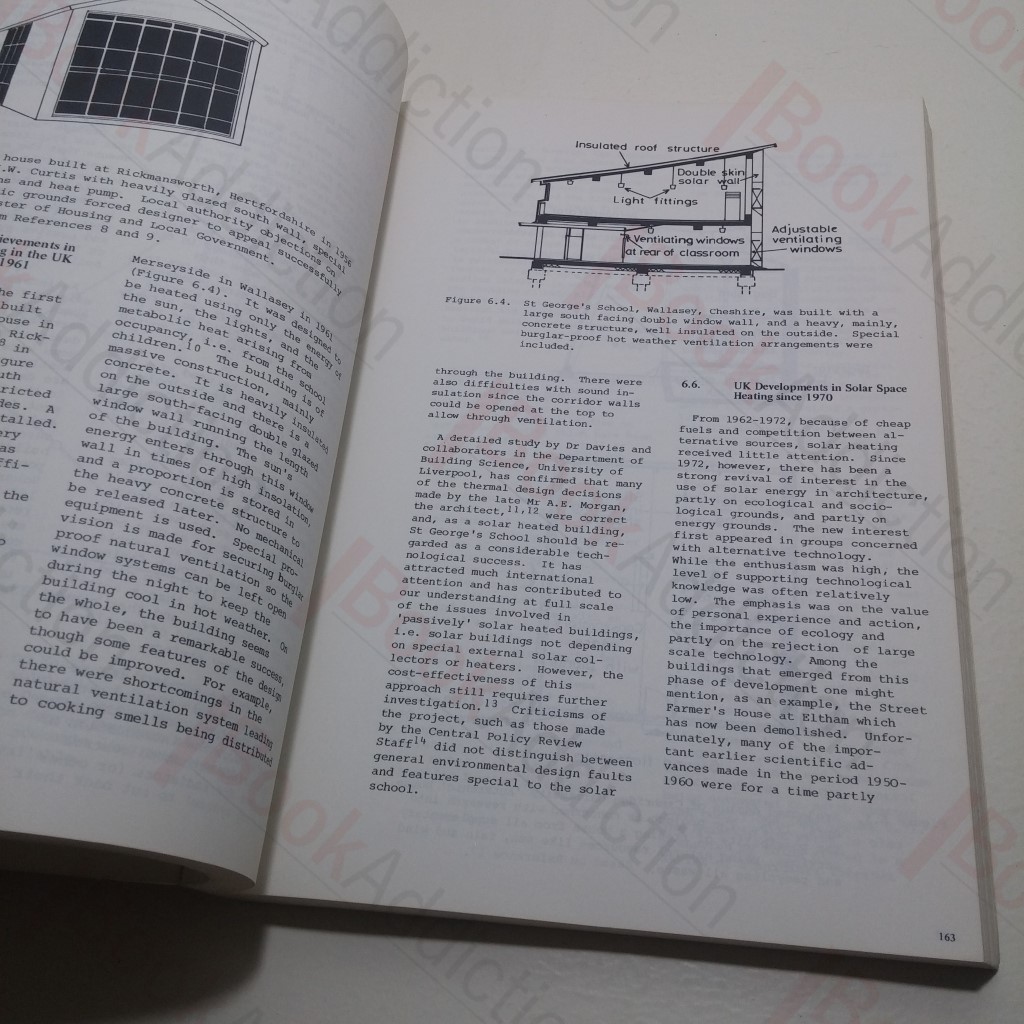 house built at Rickmansworth, Hertfordshire in 1956
.W. Curtis with heavily glazed south wall, special
ns and heat pump. Local authority objections on
ic grounds forced designer to appeal successfully
ster of Housing and Local Government.
m References 8 and 9.
ievements in
g in the UK
1961
he first
built
ouse in
Rick-
8 in
gure
uth
ricted
des. A
talled.
ery
as
ffi-
the
Merseyside in Wallasey in 1961
(Figure 6.4). It was designed to
be heated using only the energy of
the sun, the lights, and the
metabolic heat arising from
occupancy, i.e. from the school
children.10 The building is of
massive construction, mainly
concrete. It is heavily insulated
on the outside and there is a
large south-facing double glazed
window wall running the length
of the building. The sun's
energy enters through this window
wall in times of high insolation,
and a proportion is stored in
the heavy concrete structure to
be released later. No mechanical
equipment is used. Special pro-
vision is made for securing burglar
proof natural ventilation so the
window systems can be left open
during the night to keep the
building cool in hot weather. On
the whole, the building seems
to have been a remarkable success,
though some features of the design
could be improved. For example,
there were shortcomings in the
natural ventilation system leading
to cooking smells being distributed
Insulated roof structure
Double skin
solar wall
Light fittings
Ventilating windows
at rear of classroom
Adjustable
ventilating
windows
Figure 6.4. St George's School, Wallasey, Cheshire, was built with a
large south facing double window wall, and a heavy, mainly,
concrete structure, well insulated on the outside. Special
burglar-proof hot weather ventilation arrangements were
included.
through the building. There were
also difficulties with sound in-
sulation since the corridor walls
could be opened at the top to
allow through ventilation.
A detailed study by Dr Davies and
collaborators in the Department of
Building Science, University of
Liverpool, has confirmed that many
of the thermal design decisions
made by the late Mr A.E. Morgan,
the architect,11,12 were correct
and, as a solar heated building,
St George's School should be re-
garded as a considerable tech-
nological success. It has
attracted much international
attention and has contributed to
our understanding at full scale
of the issues involved in
'passively' solar heated buildings,
i.e. solar buildings not depending
on special external solar col-
lectors or heaters. However, the
cost-effectiveness of this
approach still requires further
investigation.13 Criticisms of
the project, such as those made
by the Central Policy Review
Staff14 did not distinguish between
general environmental design faults
and features special to the solar
school.
6.6. UK Developments in Solar Space
Heating since 1970
From 1962-1972, because of cheap
fuels and competition between al-
ternative sources, solar heating
received little attention. Since
1972, however, there has been a
strong revival of interest in the
use of solar energy in architecture,
partly on ecological and socio-
logical grounds, and partly on
energy grounds. The new interest
first appeared in groups concerned
with alternative technology.
While the enthusiasm was high, the
level of supporting technological
knowledge was often relatively
low. The emphasis was on the value
of personal experience and action,
the importance of ecology and
partly on the rejection of large
scale technology. Among the
buildings that emerged from this
phase of development one might
mention, as an example, the Street
Farmer's House at Eltham which
has now been demolished. Unfor-
tunately, many of the impor-
tant earlier scientific ad-
vances made in the period 1950-
1960 were for a time partly
163
BookAddiction